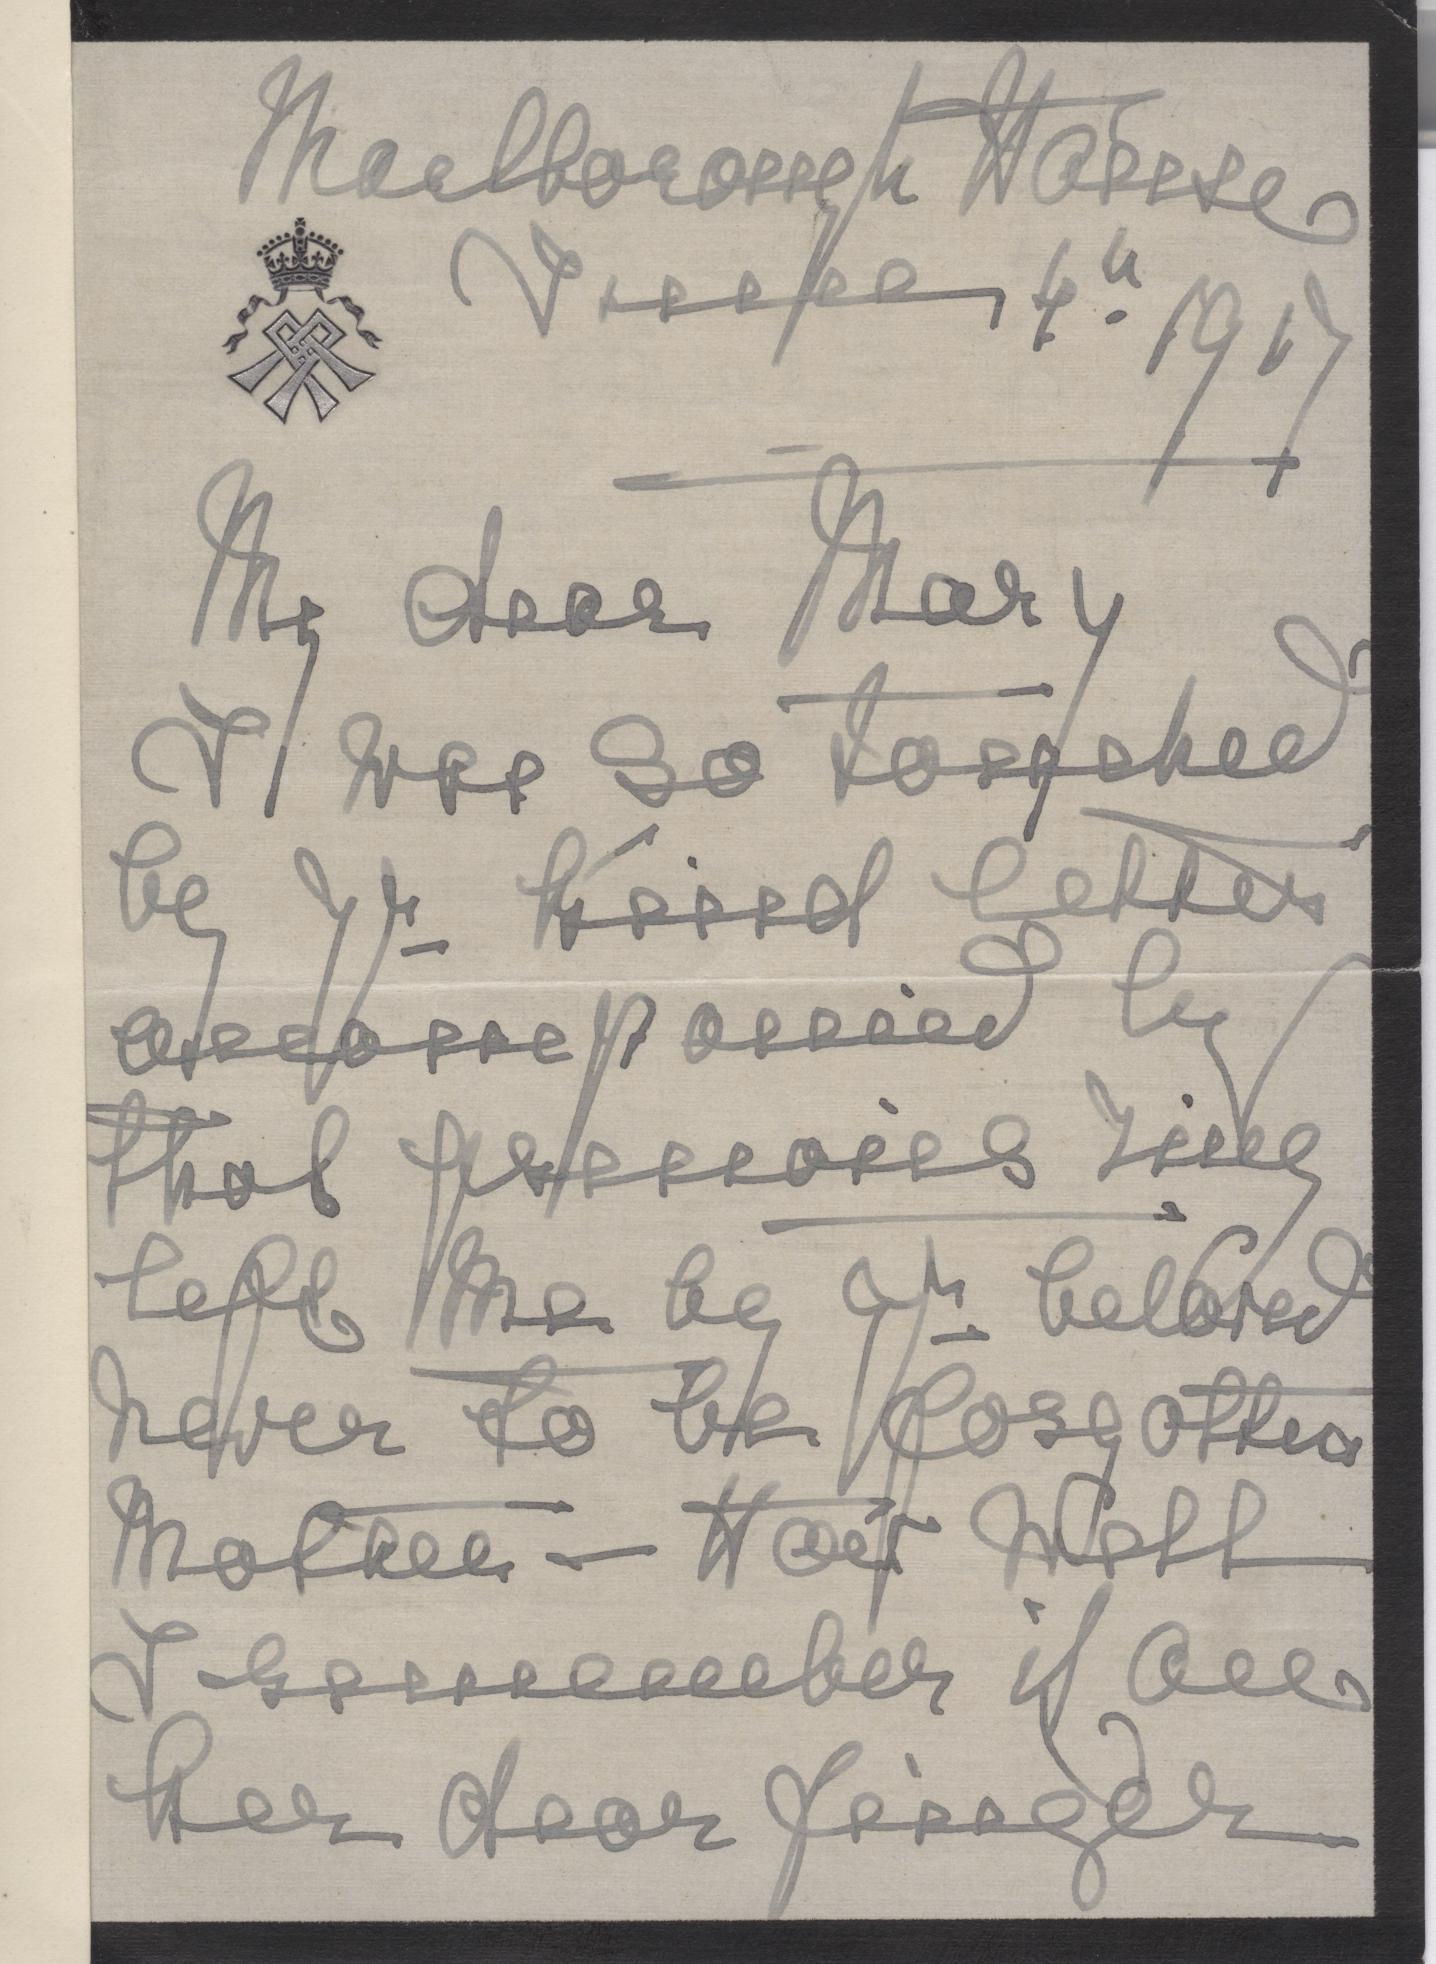 Marlborough House
June 4th. 1917
My dear Mary
I was so touched
by yr kind letter
accompanied by
that precious ring
left me by yr beloved
never to be forgotten
Mother — How well
I remember it on
her dear finger